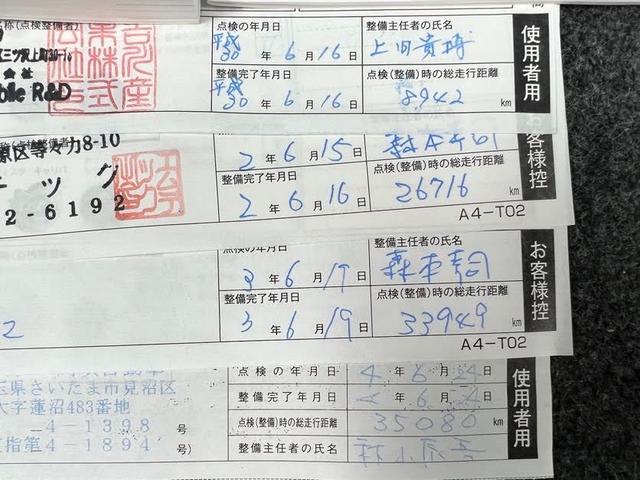 称(点検整備者)
点検の年月日
整備主任者の氏名
平成
30年6月16日
上田貴博
会社
Mobile R&D
整備完了年月日
点検(整備)時の総走行距離
平成
30年6月16日
8942 km
使用者用
原区等々力8-10
2年6月15日
ニック
整備完了年月日
点検(整備)時の総走行距離
2-6192
2年6月16日
26716 km
A4-T02
お客様控
点検の年月日
整備主任者の氏名
3年6月19日
森本寿司
整備完了年月日
点検(整備)時の総走行距離
2
3年6月19日
33949 km
A4-T02
お客様控
玉県さいたま市見沼区
大字蓮沼483番地
-4-1398 号
指第-4-1894 号)
点検の年月日
4年6月24日
整備完了年月日
年6月24日
点検(整備)時の総走行距離
35080 km
整備主任者の氏名
使用者用